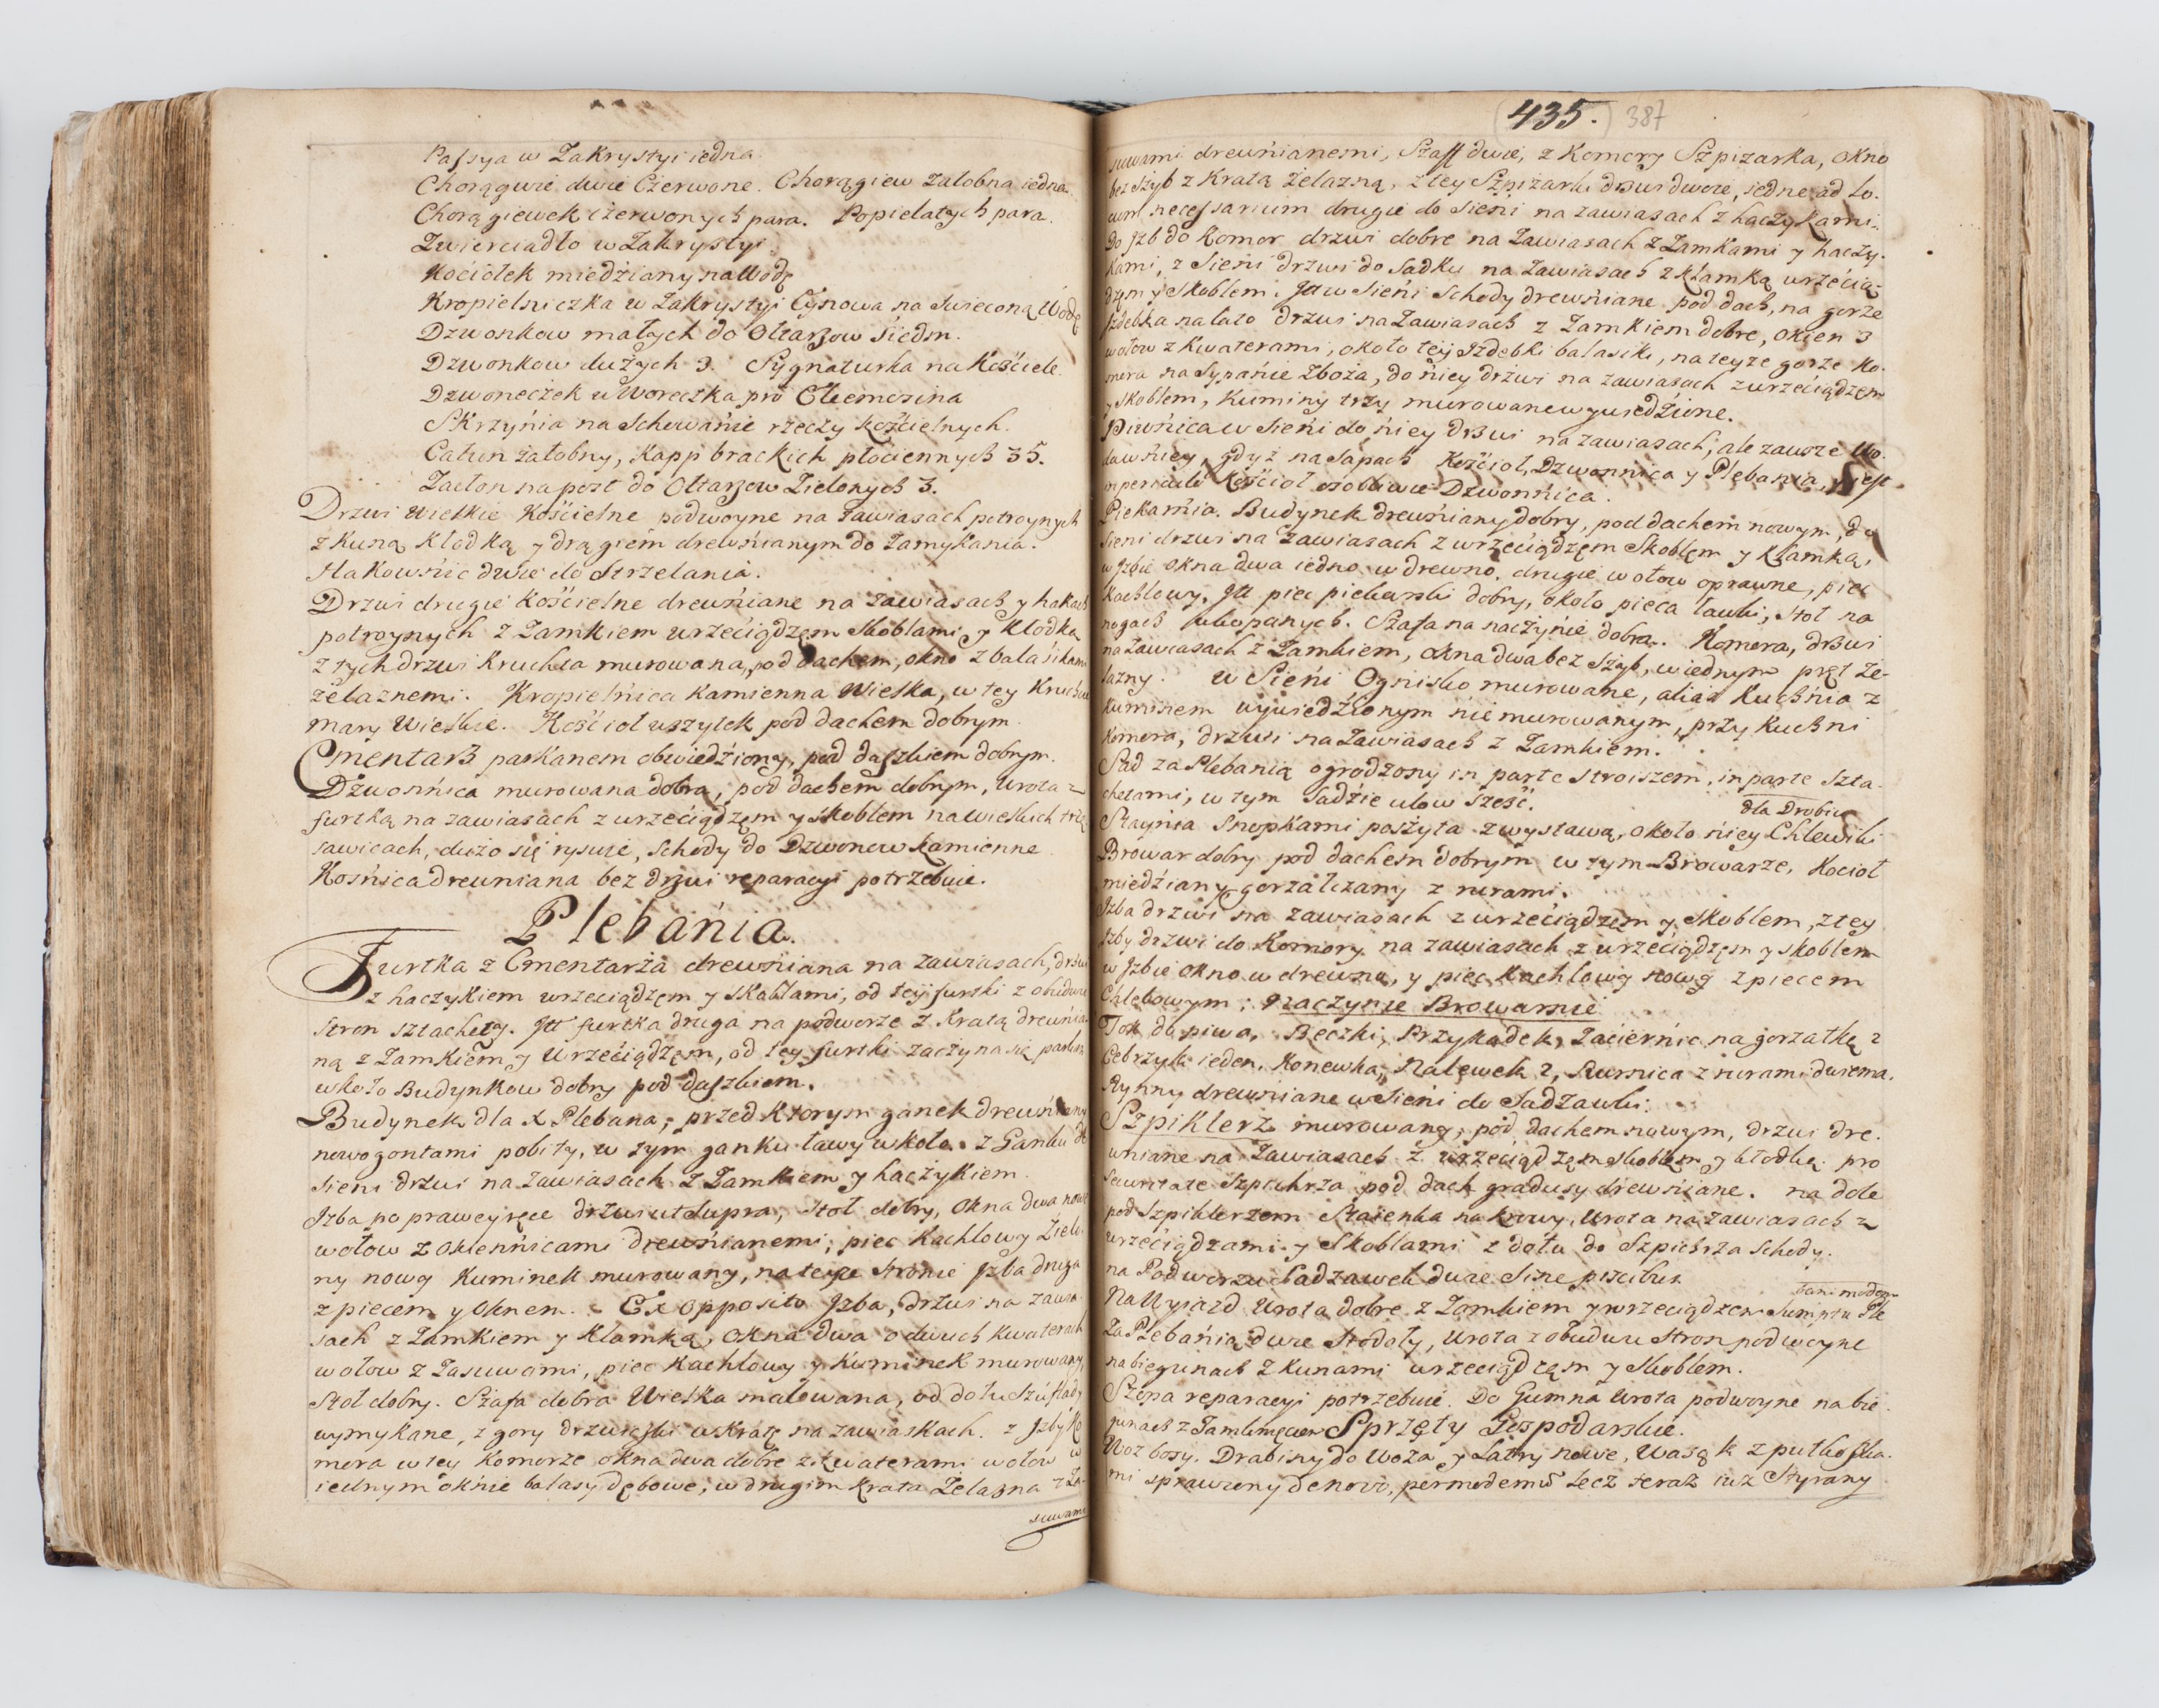 Passya w Zakrystyi iedna.
Chorągwie dwie Czerwone. Chorągiew żałobna iedna.
Chorągiewek czerwonych para. Popielatych para.
Zwierciadło w Zakrystyi.
Kociołek miedźiany na Wodę
Kropielniczka w Zakrystyi Cynowa na Swieconą Wodę
Dzwonkow małych do Ołtarzow śiedm.
Dzwonkow dużych 3. Sygnaturka na Kościele.
Dzwoneczek u Woreczka pro Elemosina
Skrzynia na Schowańie rzeczy kościelnych.
Całun żałobny, Kapp brackich płociennych 35.
Zasłon na post do Ołtarzow Zielonych 3.
Drzwi Wielkie Kościelne podwoyne na zawiasach potroynych
z Kuną Kłodką y drągiem drewńianym do Zamykania.
Hakownic dwie do Strzelania.
Drzwi drugie Kościelne drewńiane na zawiasach y hakach
potroynych z Zamkiem wrzeciądzem Skoblami y Kłodką
z tych drzwi Kruchta murowana, pod dachem, okno z balasikami
żelaznemi. Kropielńica Kamienna Wielka, w tey Kruchcie
mary Wielkie. Kośćioł wszytek pod dachem dobrym.
Cmentarz parkanem obwiedźiony, pod daszkiem dobrym.
Dzwonńica murowana dobra, pod dachem dobrym, Wrota z
furtką na zawiasach z wrzeciądzem y Skoblem na wielkich
sawicach, dużo się rysuie, Schody do Dzwonow kamienne
Kośnica drewniana bez drzwi reparacyi potrzebuie.
Plebańia.
Furtka z Cmentarża drewńiana na zawiasach, drzwi
z haczykiem wrzeciądzem y Skoblami, od tey furtki z obudwu
Stron sztachety. Itt furtka druga na podworze z Kratą drewńia
ną z Zamkiem y Wrzeciądzem, od tey furtki zaczyna się parkan
wkoło Budynkow dobry pod daszkiem.
Budynek dla X Plebana, przed ktorym ganek drewńiany
nowo gontami pobity, w tym ganku ławy wkoło. z Ganku do
Sieni drzwi na zawiasach z Zamkiem y haczykiem.
Izba po prawey ręce drzwi ut supra, stoł dobry, okna dwa nowe
w ołow z okiennicami drewńianemi, piec Kachlowy Zielo
ny nowy Kuminek murowany, na teyże stronie Izba druga
z piecem y oknem. Ex opposito Izba, drzwi na zawia
sach z Zamkiem y Klamką, okna dwa o dwuch kwaterach
w ołow z Zasuwami, piec Kachlowy y Kuminek murowany,
Stoł dobry. Szafa dobra Wielka malowana, od dołu Szuflady
wymykane, z gory drzwiczki w Kratę na zawiaskach. z Izby Ko
mora w tey Komorze okna dwa dobre z kwaterami w ołow w
iednym oknie balasy dębowe, w drugim Krata Żelazna z Za-
suwami
435. 387
suwami drewńianemi, Szaff dwie, z Komory Szpizarka, okno
bez szyb z Kratą żelazną, z tey Szpiżarki drzwi dwoie, iedne ad lo-
cum necessarium drugie do sieni na zawiasach z haczykami.
Do Izb do Komor drzwi dobre na Zawiasach z Zamkami y haczy-
kami, z Sieni drzwi do Sadku na Zawiasach z klamką wrzecią-
dzem y Skoblem. Itt w Sieni Schody drewńiane pod dach, na gorze
Izdebka na lato drzwi na Zawiasach z Zamkiem dobre, okien 3
w ołow z Kwaterami, około tey Izdebki balasiki, na teyże gorze Ko-
mora na Sypanie Zboża, do niey drzwi na zawiasach z wrzeciądzem
y Skoblem, Kuminy trzy murowane wywiedźione.
Piwńica w Sieni do niey drzwi na zawiasach, ale zawsze Wo-
da w niey, gdyż na Sapach Kościoł, Dzwonnica y Plebania, y iest
in periculo Kościoł osobliwie Dzwonńica.
Piekarnia. Budynek drewńiany dobry, pod dachem nowym, do
Sieni drzwi na Zawiasach z wrzeciądzem Skoblem y Klamką,
w Izbie okna dwa iedno w drewno, drugie w ołow oprawne, piec
Kachlowy. Itt piec piekarski dobry, około pieca ławki, Stoł na
nogach wkopanych. Szafa na naczynie dobra. Komora, drzwi
na Zawiasach z Zamkiem, okna dwa bez Szyb, w iednym pręt że-
lazny. w Sieni Ognisko murowane, alias Kuchnia z
Kuminem wywiedźionym nie murowanym, przy Kuchni
Komora, drzwi na Zawiasach z Zamkiem.
Sad za Plebanią ogrodzony in parte stroiszem, in parte Szta-
chetami, w tym Sadzie ulow sześć.
dla Drobiu
Staynia Snopkami poszyta z wystawą, około niey Chlewiki
Browar dobry pod dachem dobrym w tym Browarze, Kocioł
miedźiany gorzałczany z rurami.
Izba drzwi na zawiasach z wrzeciądzem y Skoblem, z tey
Izby drzwi do Komory na zawiasach z wrzeciądzem y Skoblem
w Izbie okno w drewno, y piec Kachlowy nowy z piecem
Chlebowym; Naczynie Browarnie
Tok do piwa, Beczki, Przykadek, Zaciernic na gorzałkę 2
Cebrzyk ieden, Konewka, Nalewek 2, Rurnica z rurami dwiema.
Rynny drewńiane w Sieni do Sadzawki.
Szpiklerz murowany, pod dachem nowym, drzwi dre-
wniane na Zawiasach z wrzeciądzem Skoblem y kłodką. pro
Securitate Szpichrza pod dach gradusy drewńiane. na dole
pod Szpiklerzem Staienka na krowy, Wrota na zawiasach z
wrzeciądzami y Skoblami z dołu do Szpichrza Schody.
na Podworzu Sadzawek dwie Sine piscibus
Na Wyiazd Wrota dobre z Zamkiem y wrzeciądzem Sumptu
Za Plebanią dwie Stodoły, Wrota z obudwu Stron podwoyne
na biegunach z Kunami wrzeciądzem y Skoblem.
Szopa reparacyi potrzebuie. Do Gumna Wrota podwoyne na bie-
gunach z Zamknięciem Sprzęty Gospodarskie.
Woz bosy, Drabiny do Woza y Latry nowe, Wasąk z
mi sprawiony de novo, per modernum Lecz teraz iuż Styrany